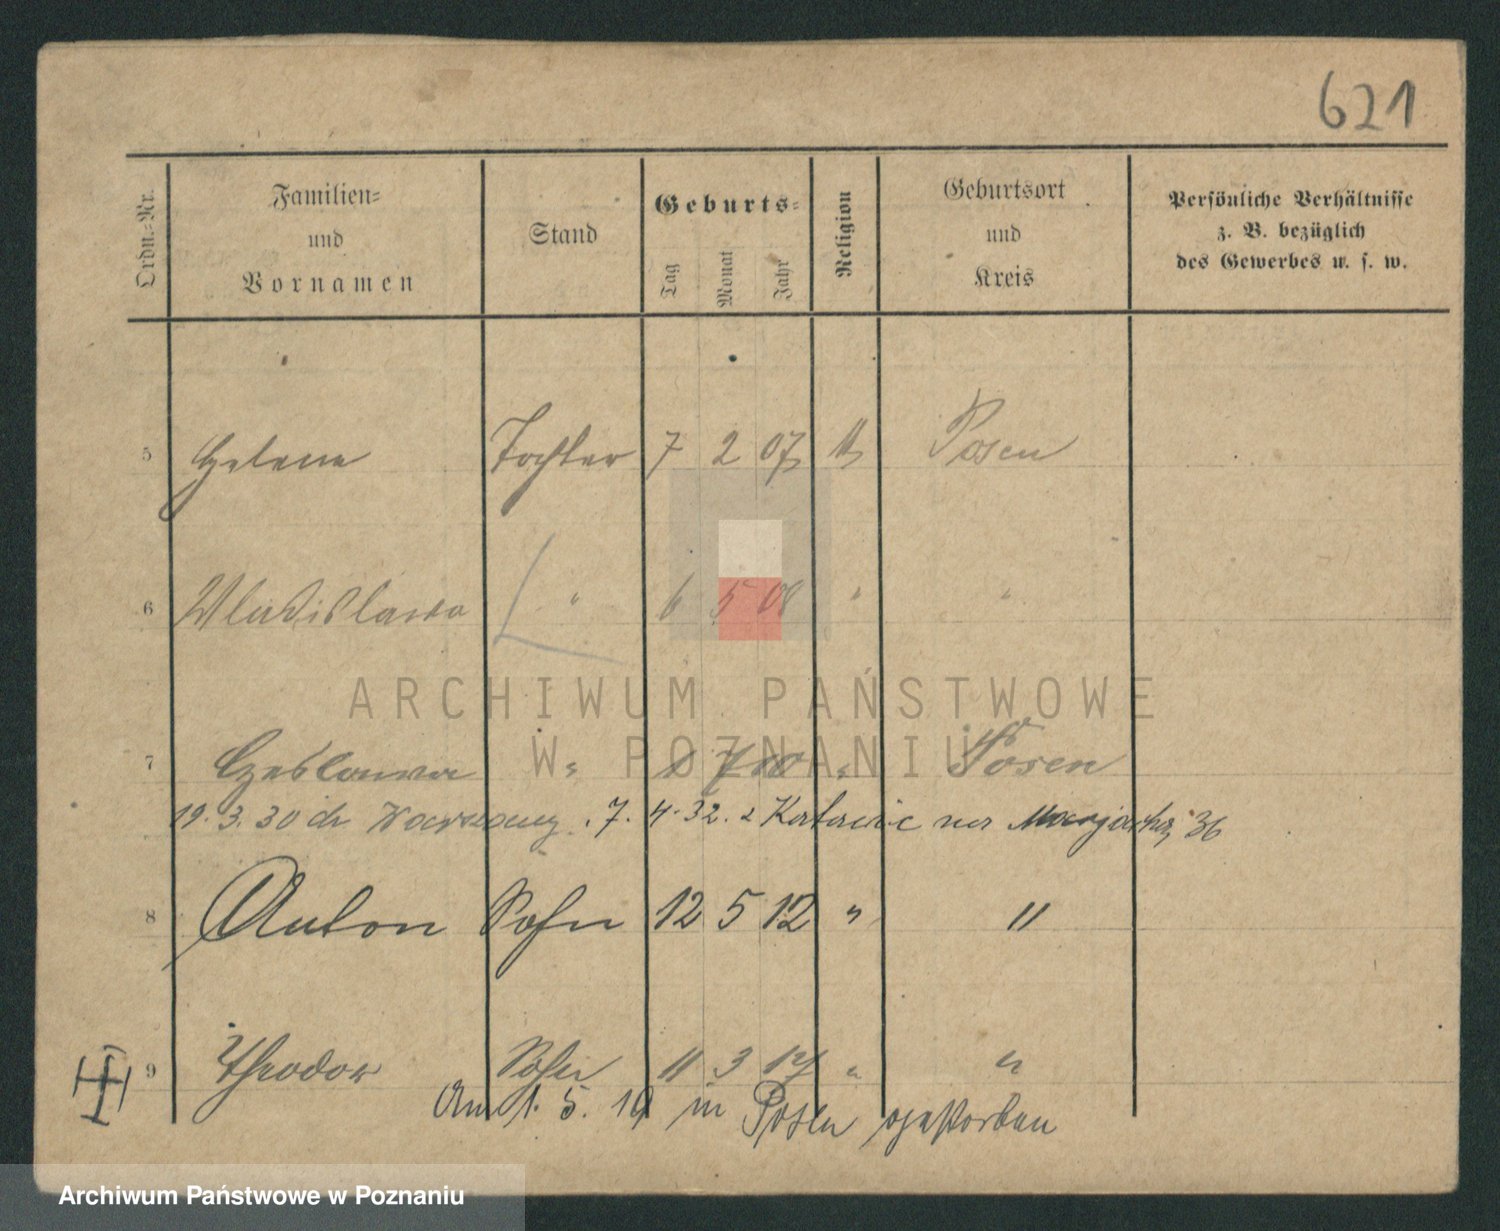 621
Ordn.-Nr.
Familien-
und
Vornamen
Stand
Geburts-
Tag Monat Jahr
Religion
Geburtsort
und
Kreis
Persönliche Verhältnisse
z. B. bezüglich
des Gewerbes u. s. w.
5 Helene Tochter 7 2 07 Posen
6 Wladislawa " 6 5 08 " "
ARCHIWUM PAŃSTWOWE
W POZNANIU
7 Czeslawa " 1 7 10 " Posen
19. 3. 30 do Warszawy . 7. 4. 32. z Katowic 36
8 Anton Sohn 12 5 12 " "
9 Theodor Sohn 11 3 14 " "
Am 1. 5. 19 in Posen gestorben
Archiwum Państwowe w Poznaniu